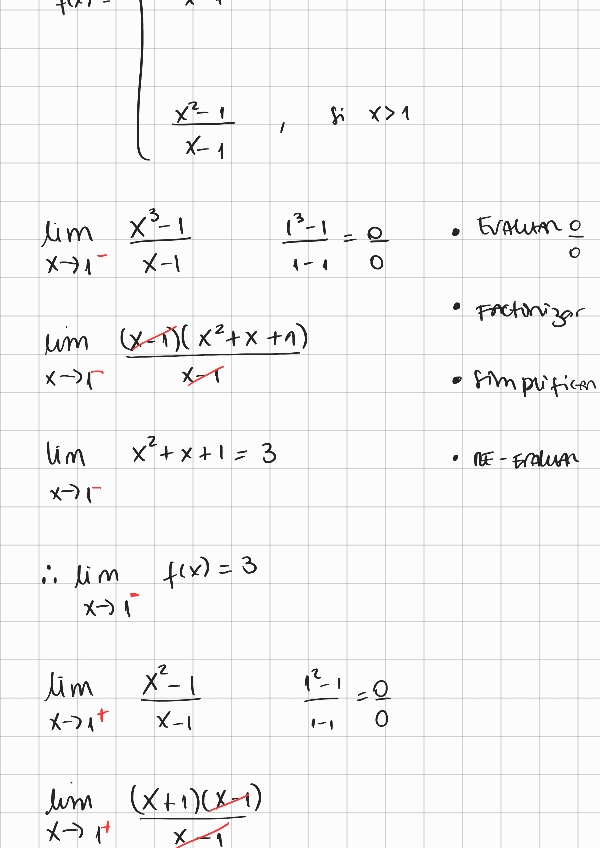 x²-1 / x-1 , si x>1
lim x→1⁻ x³-1 / x-1 1³-1 / 1-1 = 0/0
• EVALUAR 0/0
lim x→1⁻ (x-1)(x²+x+1) / x-1
• FACTORIZAR
• SIMPLIFICAR
lim x→1⁻ x²+x+1 = 3
• RE-EVALUAR
∴ lim x→1⁻ f(x) = 3
lim x→1⁺ x²-1 / x-1 1²-1 / 1-1 = 0/0
lim x→1⁺ (x+1)(x-1) / x-1